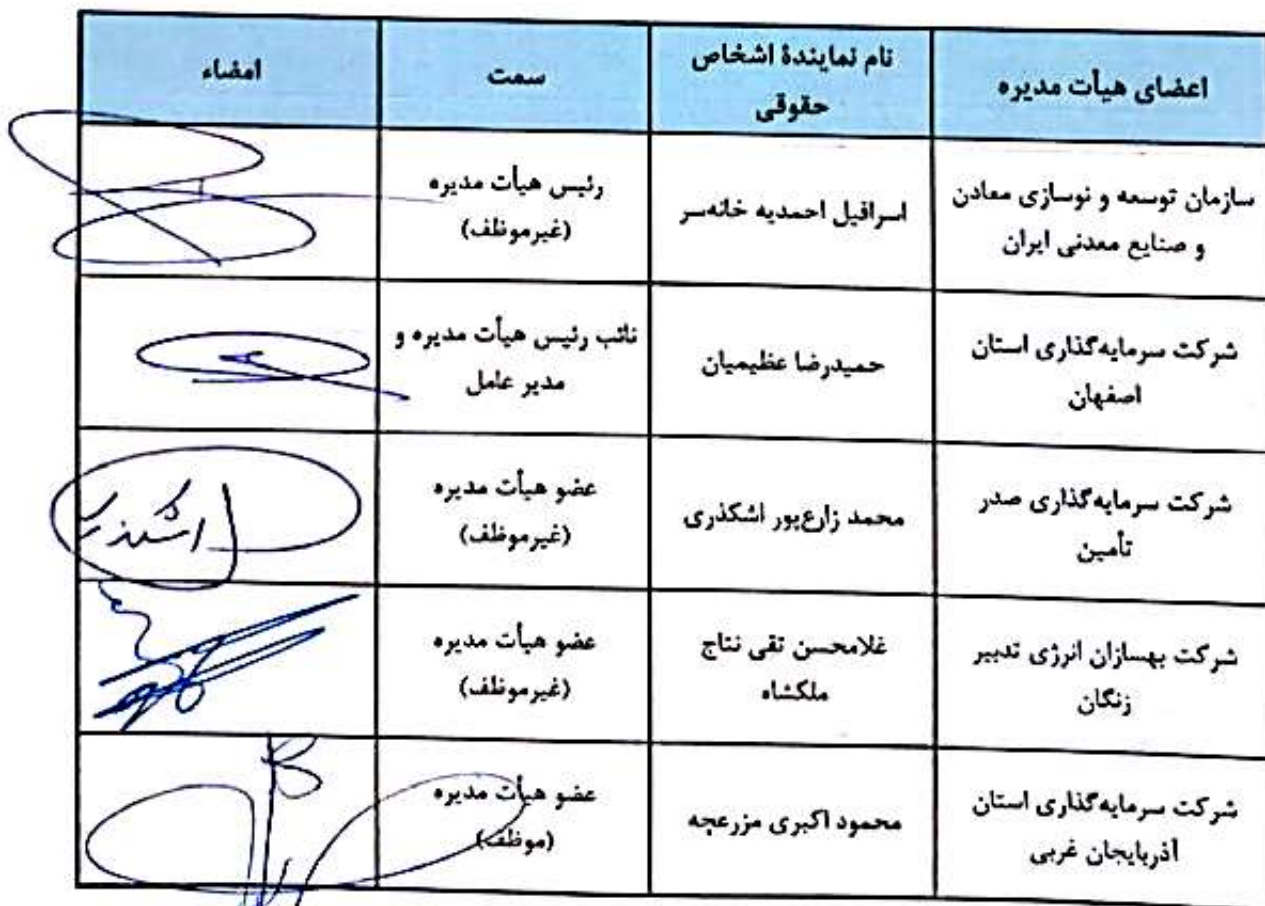 اعضای هیأت مدیره
نام نمایندهٔ اشخاص
حقوقی
سمت
امضاء
سازمان توسعه و نوسازی معادن
و صنایع معدنی ایران
اسرافیل احمدیه خانه‌سر
رئیس هیأت مدیره
(غیرموظف)
شرکت سرمایه‌گذاری استان
اصفهان
حمیدرضا عظیمیان
نائب رئیس هیأت مدیره و
مدیر عامل
شرکت سرمایه‌گذاری صدر
تأمین
محمد زارع‌پور اشکذری
عضو هیأت مدیره
(غیرموظف)
شرکت بهسازان انرژی تدبیر
زنگان
غلامحسن تقی نتاج
ملکشاه
عضو هیأت مدیره
(غیرموظف)
شرکت سرمایه‌گذاری استان
آذربایجان غربی
محمود اکبری مزرعچه
عضو هیأت مدیره
(موظف)